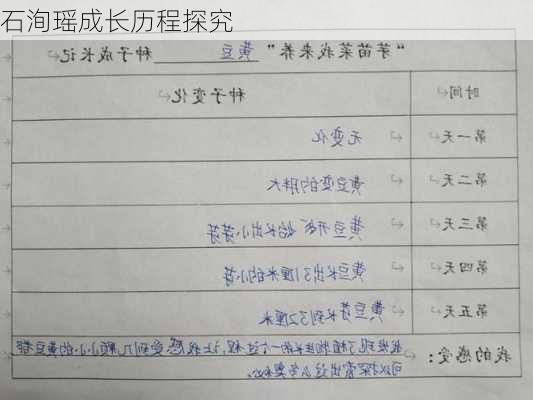 石洵瑶成长历程探究
“芽苗菜我来养” 黄豆 种子成长记
时间 种子变化
第一天 无变化
第二天 黄豆变的胖大
第三天 黄豆开始长出小芽芽
第四天 黄豆长出了1厘米的小芽
第五天 黄豆芽长到32厘米
我的感受：我发现了植物生长的一个过程，让我感受到几颗小小的黄豆都
可以探索出这么多奥秘。